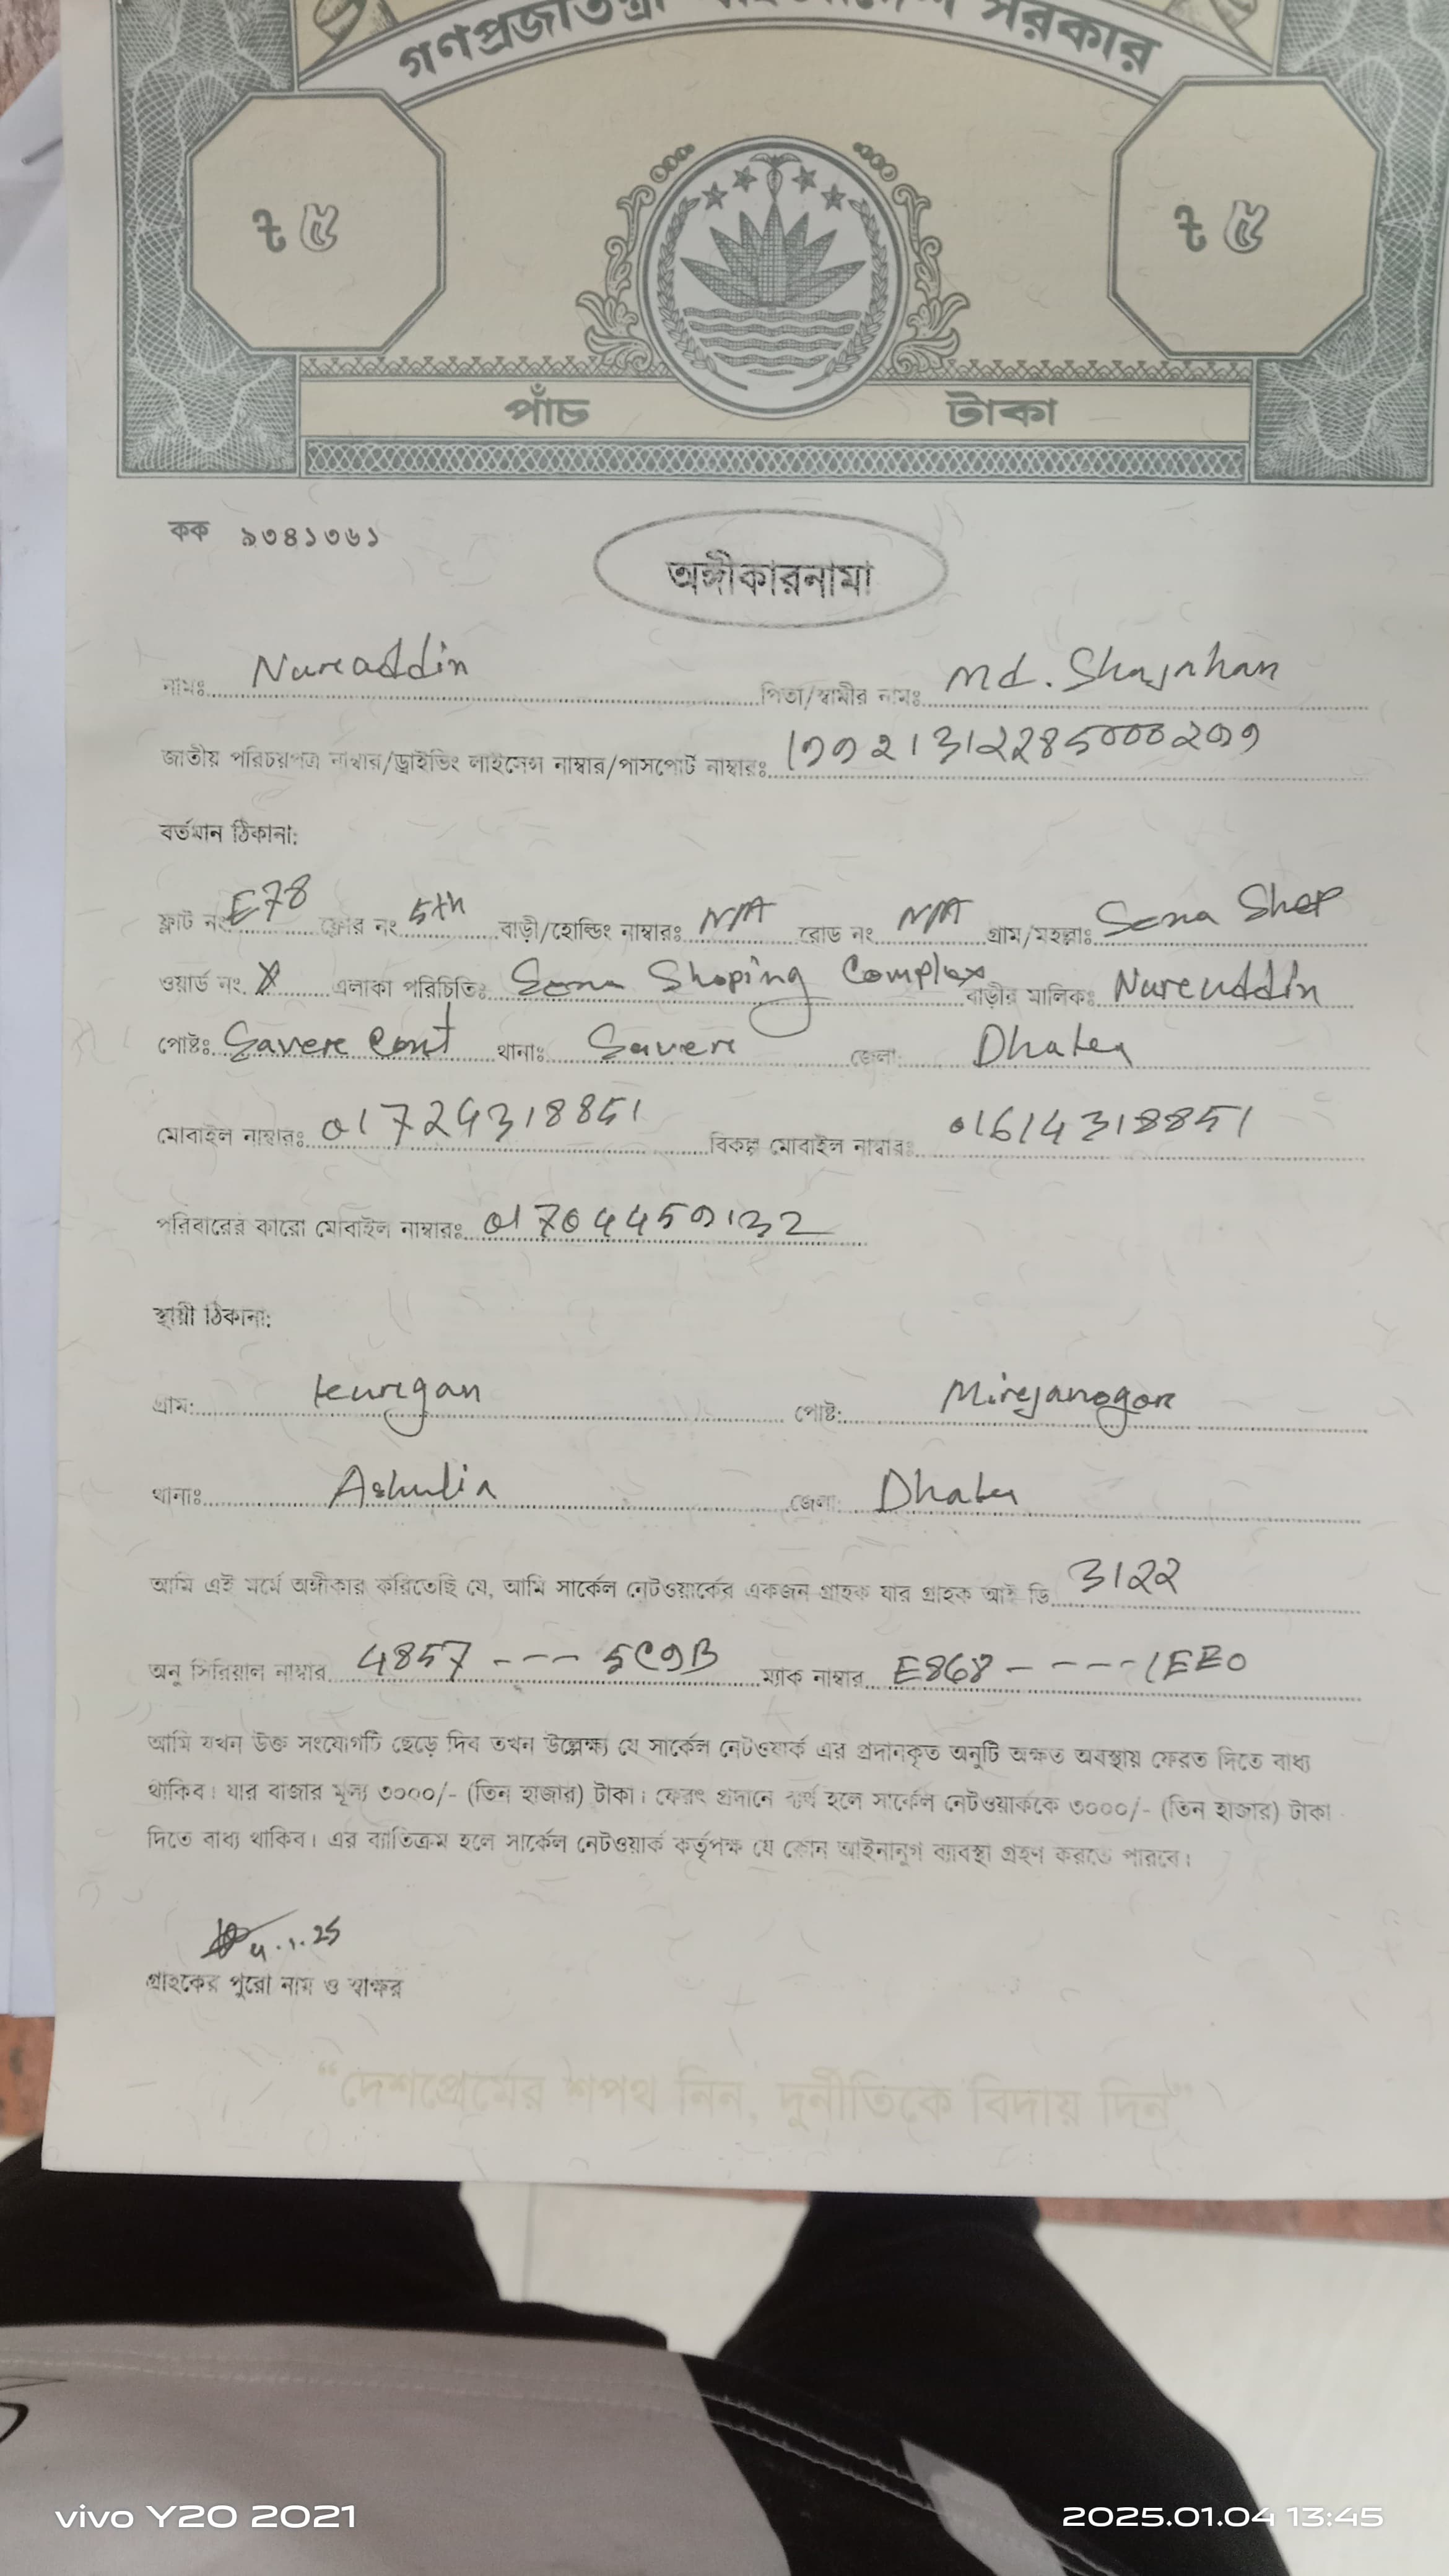 গণপ্রজাতন্ত্রী বাংলাদেশ সরকার
৳ ৫ ৳ ৫
পাঁচ টাকা
কক ৯৩৪১৩৬১
অঙ্গীকারনামা
নামঃ Nureuddin পিতা/স্বামীর নামঃ Md. Shajahan
জাতীয় পরিচয়পত্র নাম্বার/ড্রাইভিং লাইসেন্স নাম্বার/পাসপোর্ট নাম্বারঃ
বর্তমান ঠিকানা:
ফ্লাট নং E78 ফ্লোর নং 5th বাড়ী/হোল্ডিং নাম্বারঃ N/A রোড নং N/A গ্রাম/মহল্লাঃ Sena Shop
ওয়ার্ড নং X এলাকা পরিচিতিঃ Sena Shoping Complex বাড়ীর মালিকঃ Nureuddin
পোষ্টঃ Savere Cent থানাঃ Savere জেলা: Dhaka
মোবাইল নাম্বারঃ 01724318851 বিকল্প মোবাইল নাম্বারঃ 01614318851
পরিবারের কারো মোবাইল নাম্বারঃ 01704459132
স্থায়ী ঠিকানা:
গ্রাম: পোষ্ট: Mirejanogor
থানাঃ Ashulia জেলা: Dhaka
আমি এই মর্মে অঙ্গীকার করিতেছি যে, আমি সার্কেল নেটওয়ার্কের একজন গ্রাহক যার গ্রাহক আই ডি 3122
অনু সিরিয়াল নাম্বার 4857 --- 5C9B ম্যাক নাম্বার E868 - ---- 1EE0
আমি যখন উক্ত সংযোগটি ছেড়ে দিব তখন উল্লেক্ষ্য যে সার্কেল নেটওয়ার্ক এর প্রদানকৃত অনুটি অক্ষত অবস্থায় ফেরত দিতে বাধ্য
থাকিব। যার বাজার মূল্য ৩০০০/- (তিন হাজার) টাকা। ফেরৎ প্রদানে ব্যর্থ হলে সার্কেল নেটওয়ার্ককে ৩০০০/- (তিন হাজার) টাকা
দিতে বাধ্য থাকিব। এর ব্যাতিক্রম হলে সার্কেল নেটওয়ার্ক কর্তৃপক্ষ যে কোন আইনানুগ ব্যাবস্থা গ্রহণ করতে পারবে।
4.1.25
গ্রাহকের পুরো নাম ও স্বাক্ষর
“দেশপ্রেমের শপথ নিন, দুর্নীতিকে বিদায় দিন”
vivo Y20 2021 2025.01.04 13:45